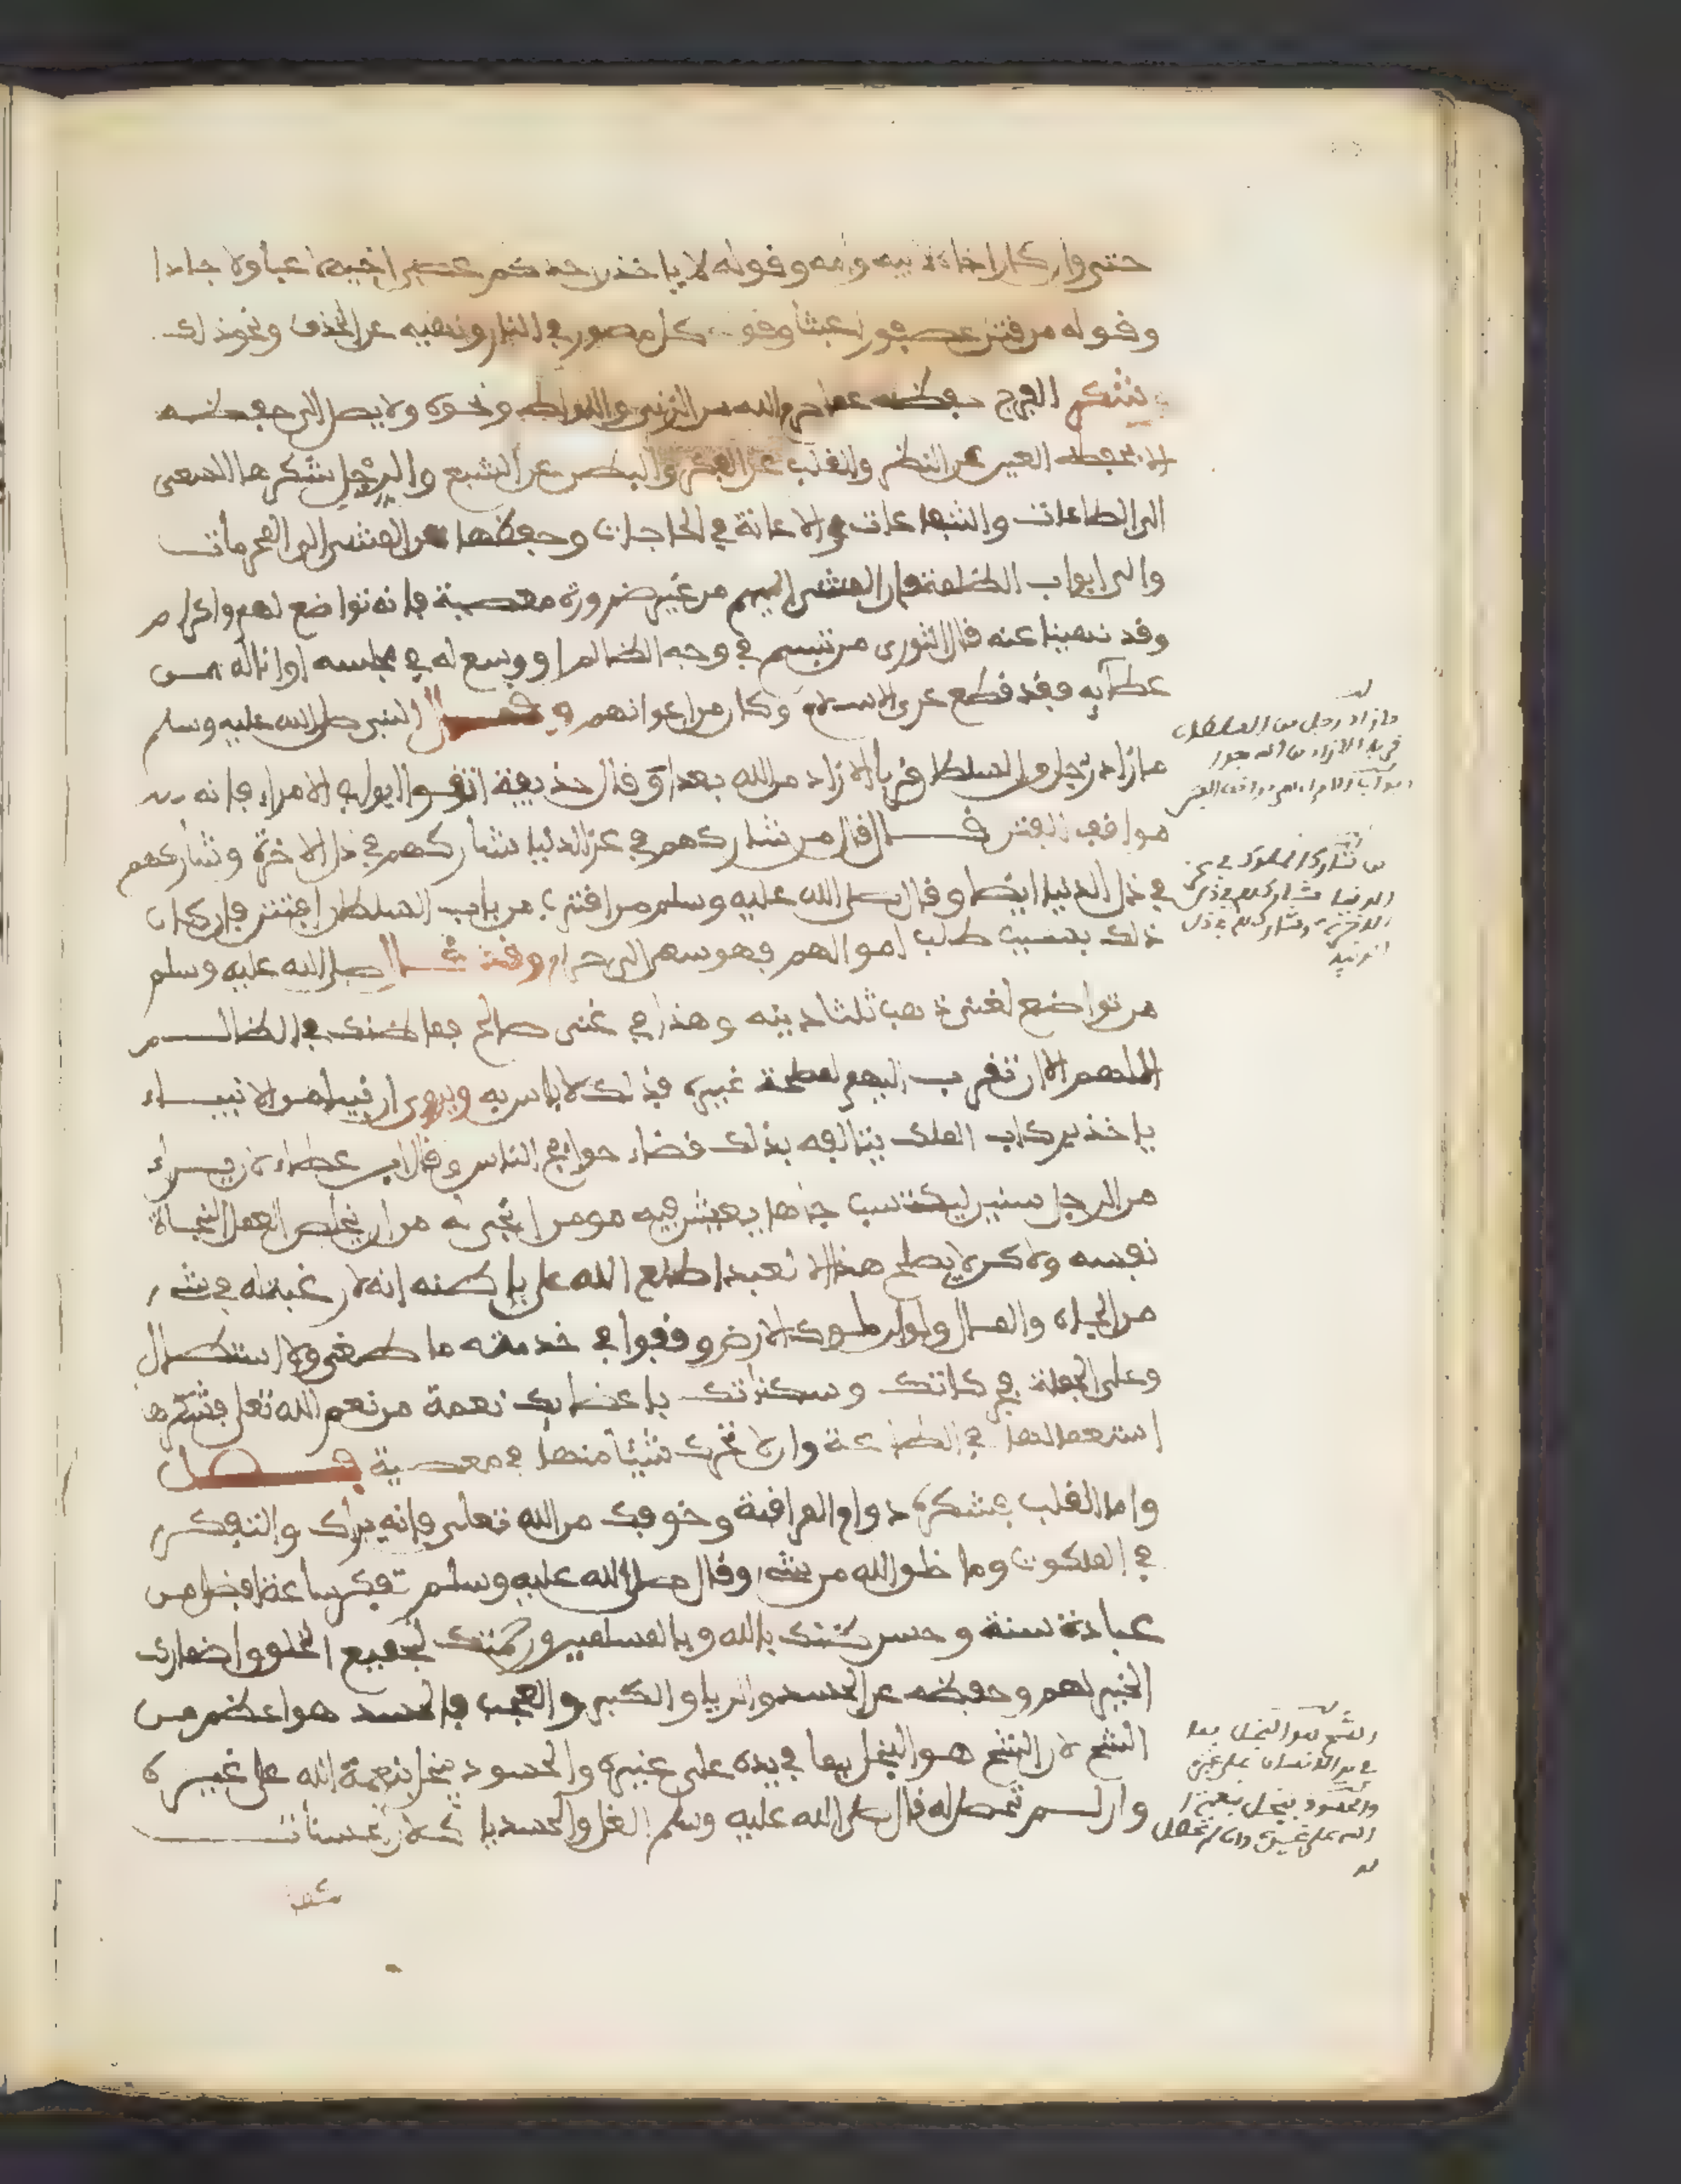 حتى وان كان اخاه لابيه وامه وقوله لا ياخذن احدكم عصى اخيه لاعبا ولا جادا
وقوله من قتل عصفورا عبثا وقوله كل مصور في النار ونهيه عن الخذف ونحو ذلك
شكر الفرج حفظه عما حرم الله من الزنى واللواط ونحوه ولا يصل الى حفظه
الا بحفظ العين عن النظر والقلب عن الفكر والبطن عن الشبع والرجل شكرها السعي
الى الطاعات والشفاعات والاعانة في الحاجات وحفظها عن المشي الى المحرمات
والى ابواب الظلمة فان المشي اليهم من غير ضرورة معصية فانه تواضع لهم واكرام
وقد نهينا عنه قال الثوري من تبسم في وجه الظالم او وسع له في مجلسه او اناله من
عطآيه فقد قطع عرى الاسلام وكان من اعوانهم وقال النبي صلى الله عليه وسلم
ما زاد رجل من السلطان قربا الا زاد من الله بعدا وقال حذيفة اتقوا ابواب الامراء فانه من
مواقف الفتن قال من شاركهم في عز الدنيا شاركهم في ذل الاخرة وشاركهم
في ذل الدنيا ايضا وقال صلى الله عليه وسلم من اقترب من باب السلطان افتتن فان كان
ذلك بسبب طلب اموالهم فهو سعي الى حرام وقد قال صلى الله عليه وسلم
من تواضع لغني ذهب ثلثا دينه وهذا في غني صالح فما ظنك في الظالم
اللهم الا ان تقرب اليهم لمصلحة غيره فذلك لا باس به ويروى ان نبيا من الانبياء
ياخذ بركاب الملك يتالفه بذلك قضاء حوائج الناس وقال ابن عطاء لان يراءي
الرجل سنين ليكتسب جاها يعيش فيه مومن انجى له من ان يخلص العمل لنجاة
نفسه ولاكن لا يصلح هذا الا لعبد اطلع الله على باطنه انه لا رغبة له في شيء
من الجاه والمال ولو ان ملوك الارض وقفوا في خدمته ما طغى ولا استطال
وعلى الجملة فحركاتك وسكناتك باعضايك نعمة من نعم الله تعلى فشكرها
استعمالها في الطاعة وان لا تحرك شيئا منها في معصية فصل
واما القلب فشكره دوام المراقبة وخوفك من الله تعلى فانه يراك والتفكر
في الملكوت وما خلق الله من شيء وقال صلى الله عليه وسلم تفكر ساعة افضل من
عبادة سنة وحسن ظنك بالله وبالمسلمين ورحمتك لجميع الخلق واضمارك
الخير لهم وحفظه عن الحسد والريا والكبر والعجب فالحسد هو اعظم من
الشح لان الشح هو البخل بما في يده على غيره والحسود يبخل بنعمة الله على غيره
وان لم تحصل له قال صلى الله عليه وسلم الغل والحسد ياكلان الحسنات
ما زاد رجل من السلطان
قربا الا زاد من الله بعدا
ابواب الامراء من مواقف الفتن
من شارك الملوك في عز
الدنيا شاركهم في ذل
الاخرة وشاركهم في ذل
الدنيا
الشح هو البخل بما
في يد الانسان على غيره
والحسود يبخل بنعمة
الله على غيره وان لم تحصل
له